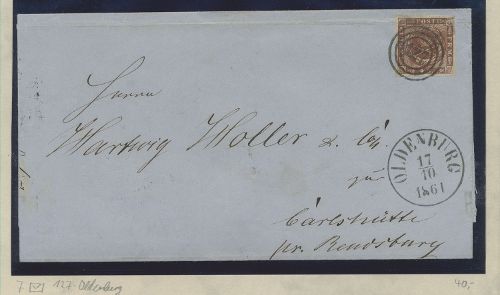 POST
FRM
Herrn
Hartwig Holler & Co,
zur
Carlshütte
pr. Rendsburg
OLDENBURG
17
10
1861
7 127 Oldenburg
40,-